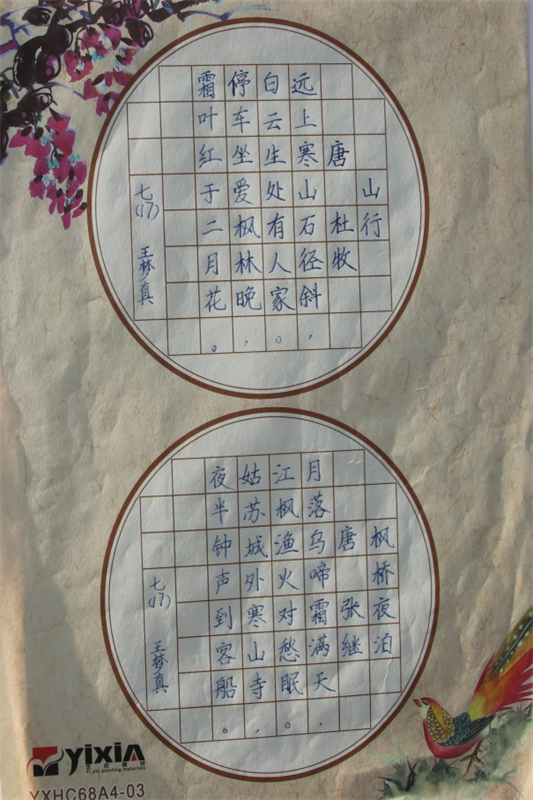 山行
唐 杜牧
远上寒山石径斜，
白云生处有人家。
停车坐爱枫林晚，
霜叶红于二月花。
七(17) 王梦真
枫桥夜泊
唐 张继
月落乌啼霜满天，
江枫渔火对愁眠。
姑苏城外寒山寺，
夜半钟声到客船。
七(17) 王梦真
YIXIA
YXHC68A4-03